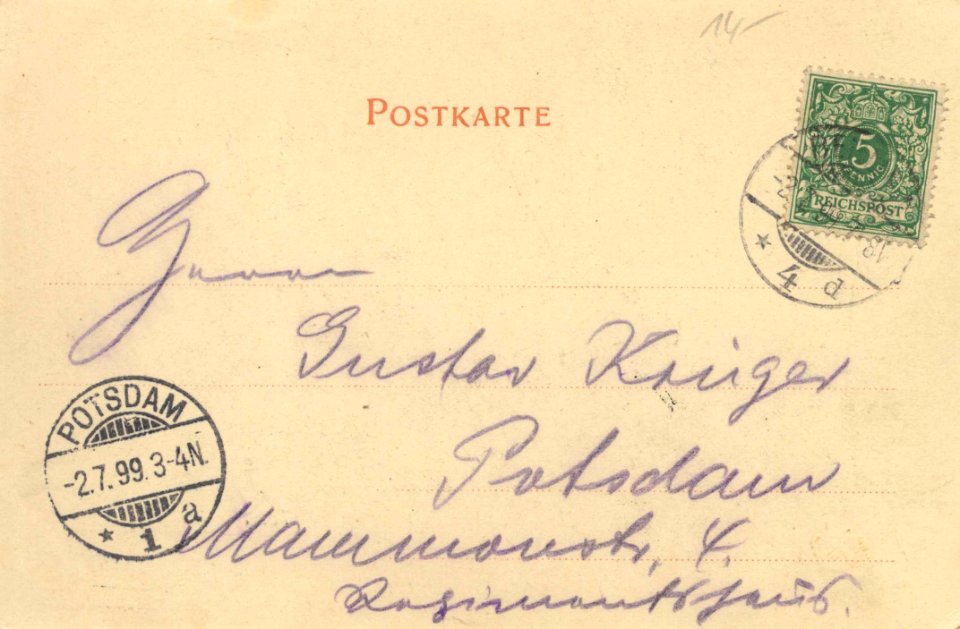 14-
POSTKARTE
5
PFENNIG
REICHSPOST
4 d
Herrn
Gustav Krüger
POTSDAM
-2.7.99. 3-4N.
* 1 a
Potsdam
Mammonstr. 4.
Regimentshaus.